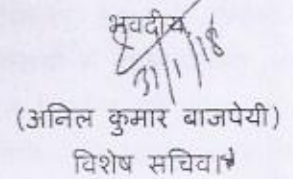 भवदीय,
31/1/18
(अनिल कुमार बाजपेयी)
विशेष सचिव।